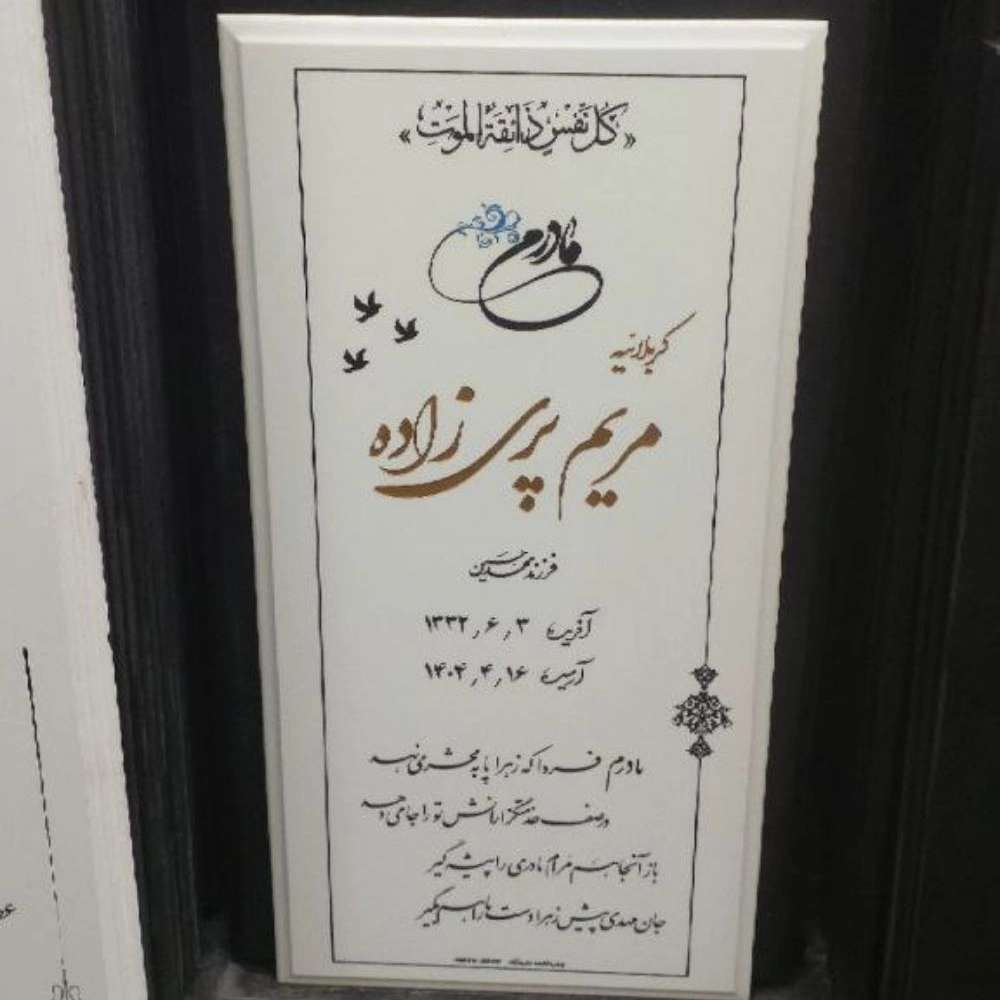 «كُلُّ نَفْسٍ ذَائِقَةُ الْمَوْتِ»
مادرم
کربلائیه
مریم پری زاده
فرزند محمدحسین
آفرینش ۱۳۳۲٫۶٫۳
آرمیدن ۱۴۰۴٫۴٫۱۶
مادرم فردا که زهرا پا به محشر می نهد
در صف خدمتگزارانش تو را جا می دهد
باز آنجا هم مرام مادری را پیش گیر
جان مهدی پیش زهرا دست ما را هم بگیر